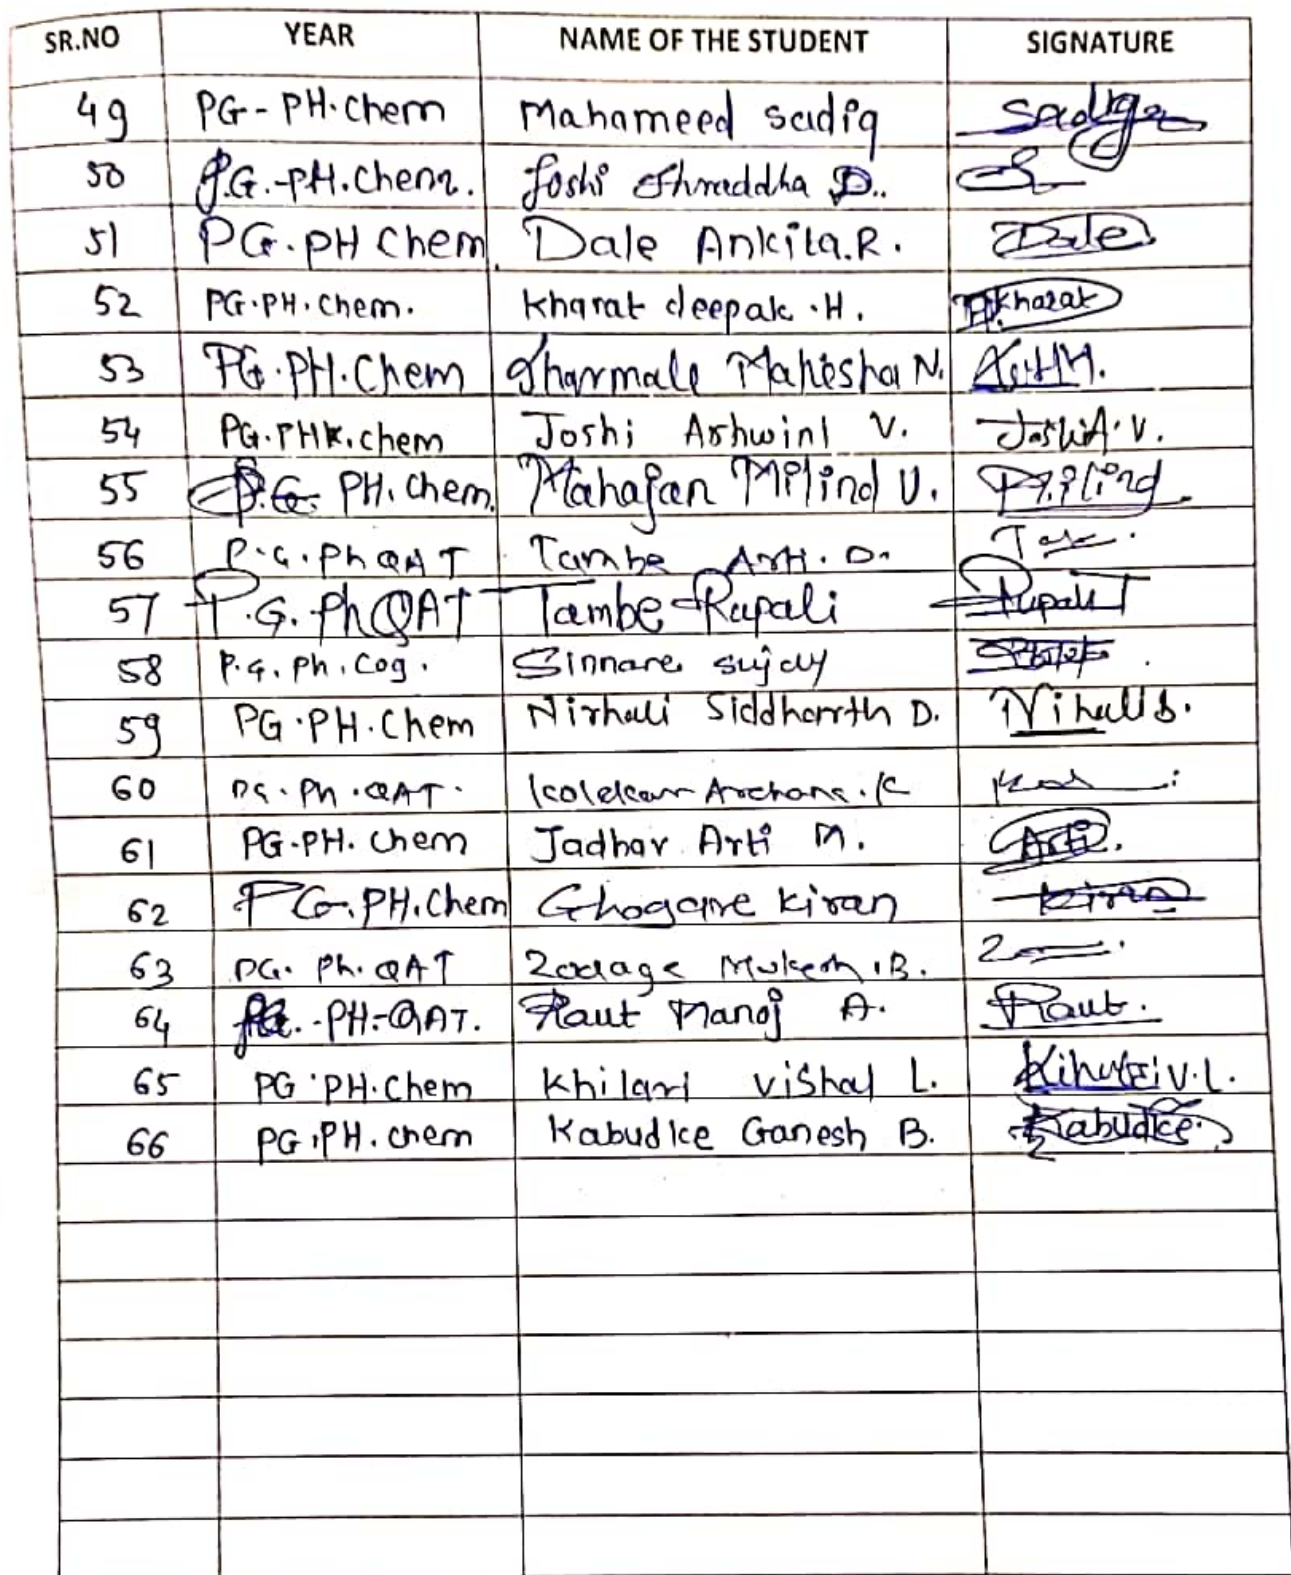 SR.NO YEAR NAME OF THE STUDENT SIGNATURE
49 PG-PH.Chem Mahameed sadiq sadiq
50 P.G.-PH.Chem. Joshi Shraddha D.
51 PG.PH Chem Dale Ankita.R. Dale
52 PG.PH.Chem. Kharat deepak.H. Kharat
53 PG.PH.Chem Mahesha N.
54 PG.PHK.chem Joshi Ashwini V. Joshi A.V.
55 P.G. PH.Chem. Mahajan Milind U. Milind
56 P.G.Ph QAT Tambe Arti. D.
57 P.G.Ph QAT Tambe Rupali Rupali T
58 P.G.Ph.Cog. Sinnare sujay
59 PG.PH.Chem Nirhali Siddharrth D.
60 PG.Ph.QAT. Kolekar Archana.K
61 PG.PH.Chem Jadhav Arti M. Arti.
62 PG.PH.Chem Ghogare Kiran Kiran
63 PG. Ph.QAT Zodage Mukesh.B.
64 PG.-PH-QAT. Raut Manoj A. Raut.
65 PG.PH.Chem Khilari Vishal L.
66 PG.PH.chem Kabudke Ganesh B. Kabudke